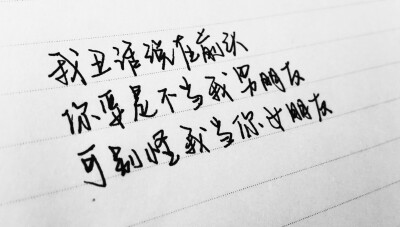 我丑话说在前头
你要是不当我男朋友
可别怪我当你女朋友